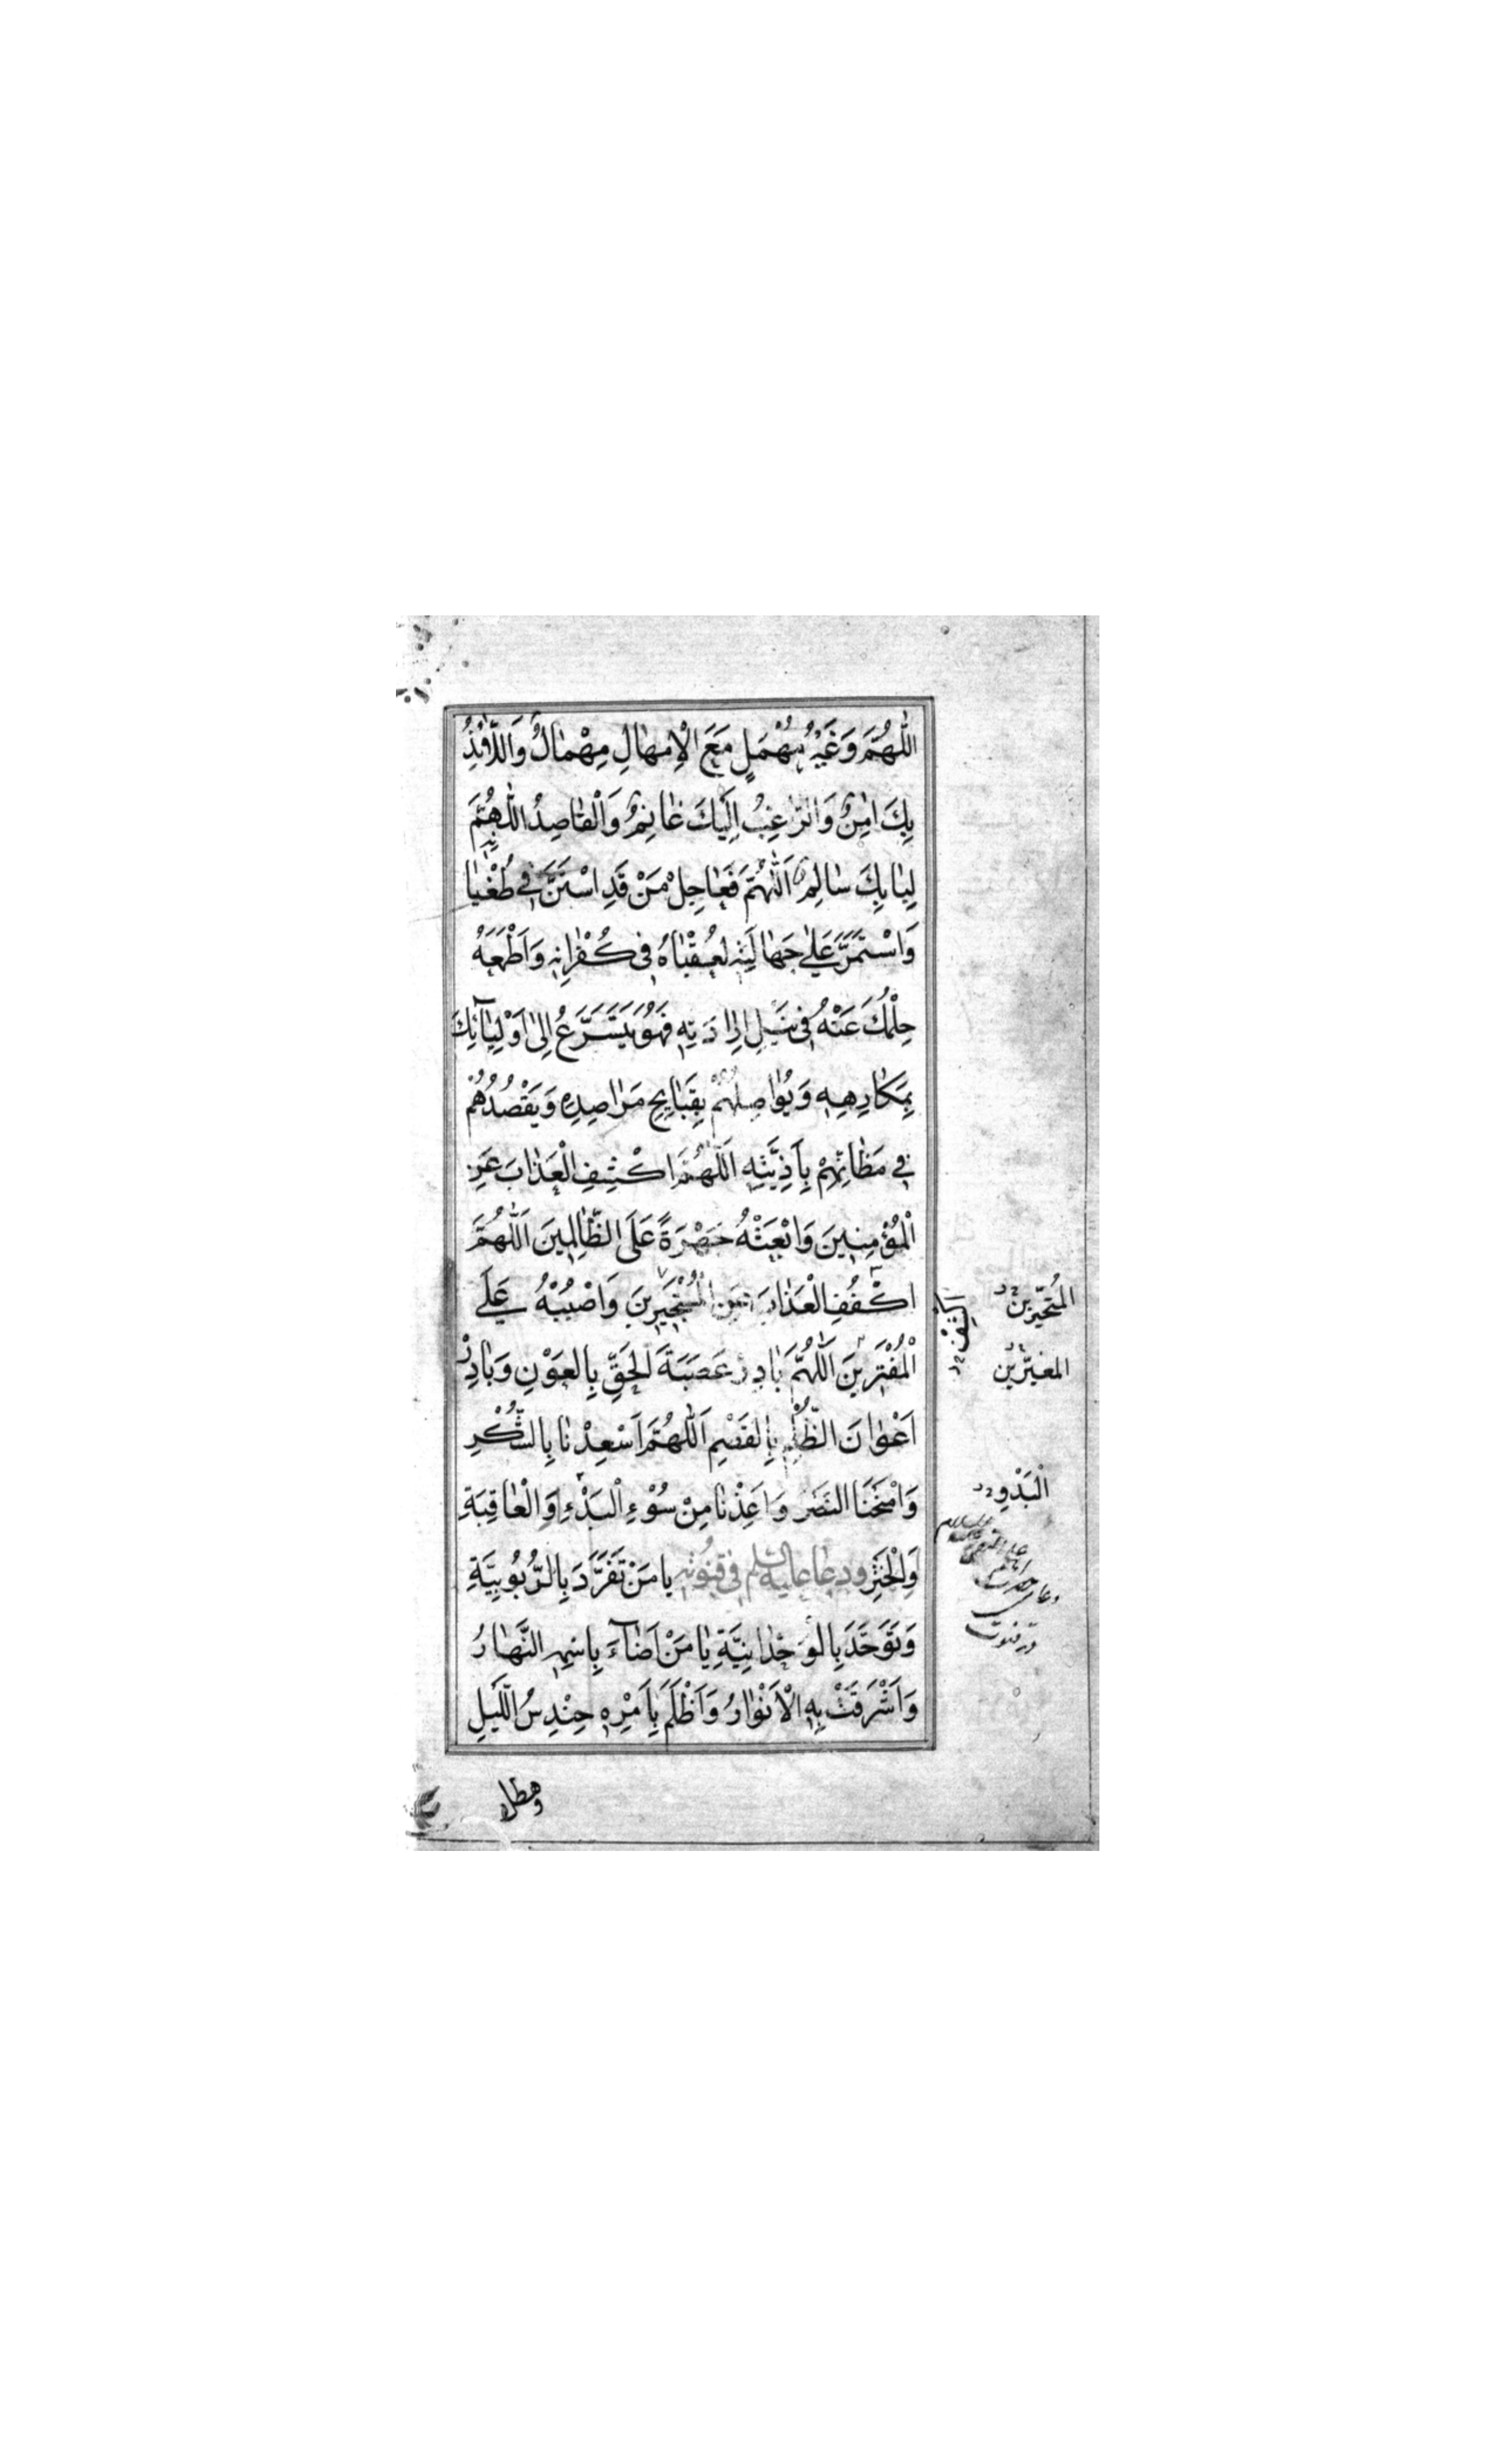 اللّٰهُمَّ وَغَيْرُ مُهْمَلٍ مَعَ الْاِمهٰالِ مِهْمٰالٌ وَاللّٰائِذُ
بِكَ اٰمِنٌ وَالرّٰاغِبُ اِلَيْكَ غٰانِمٌ وَالْقٰاصِدُ اللّٰهُمَّ
لِبٰابِكَ سٰالِمٌ اَللّٰهُمَّ فَعٰاجِلْ مَنْ قَدِ اسْتَنَّ فِي طُغْيٰا
وَاسْتَمَرَّ عَلىٰ جَهٰالَتِهِ لِعُقْبٰاهُ فِي كُفْرٰانِهِ وَاَطْمَعَهُ
حِلْمُكَ عَنْهُ فِي نَيْلِ اِرٰادَتِهِ فَهُوَ يَتَسَرَّعُ اِلىٰ اَوْلِيٰآئِكَ
بِمَكٰارِهِهِ وَيُوٰاصِلُهُمْ بِقَبٰايِحِ مَرٰاصِدِهِ وَيَقْصُدُهُمْ
فِي مَظٰانِّهِمْ بِاَذِيَّتِهِ اَللّٰهُمَّ اكْشِفِ الْعَذٰابَ عَنِ
الْمُؤْمِنِينَ وَابْعَثْهُ جَهْرَةً عَلَى الظّٰالِمِينَ اَللّٰهُمَّ
اكْفُفِ الْعَذٰابَ عَنِ الْمُسْتَجِيرِينَ وَاصْبُبْهُ عَلَى
الْمُفْتَرِينَ اَللّٰهُمَّ بٰادِرْ عَصَبَةَ الْحَقِّ بِالْعَوْنِ وَبٰادِرْ
اَعْوٰانَ الظُّلْمِ بِالْقَصْمِ اَللّٰهُمَّ اَسْعِدْنٰا بِالشُّكْرِ
وَامْنَحْنَا النَّصْرَ وَاَعِذْنٰا مِنْ سُوْءِ الْبَدْءِ وَالْعٰاقِبَةِ
وَالْخَتْرِ ودعٰا عليه السلم في قنوته يا مَنْ تَفَرَّدَ بِالرُّبُوبِيَّةِ
وَتَوَحَّدَ بِالْوَحْدٰانِيَّةِ يٰا مَنْ اَضٰآءَ بِاسْمِهِ النَّهٰارُ
وَاَشْرَقَتْ بِهِ الْاَنْوٰارُ وَاَظْلَمَ بِاَمْرِهِ حِنْدِسُ اللَّيْلِ
وهطل
المُتَحَيِّرِين
المغيّرين
الْبَدْوِ
در قنوت